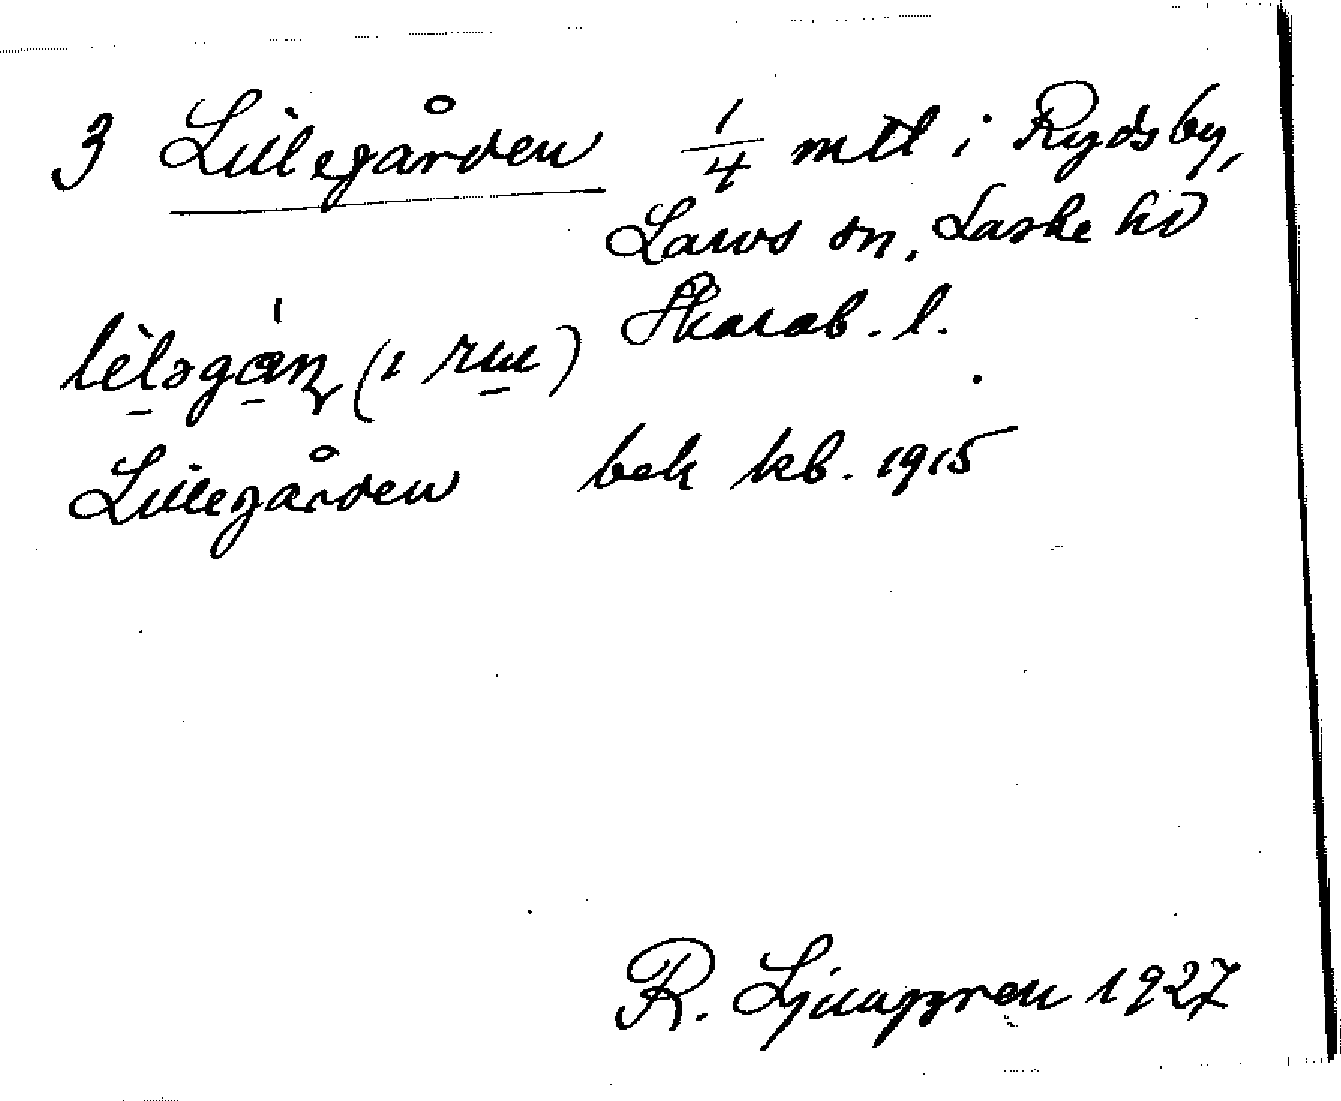 3 Lillegården 1/4 mtl i Rydsby,
Larvs sn, Laske hd
Skarab. l.
(ı rɯ)
Lillegården bek kb. 1915
R. Ljunggren 1927